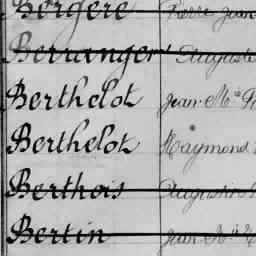 Bergère Pierre Jean
Berranger Auguste
Berthelot Jean Mie
Berthelot Raymond
Berthois Augustin
Bertin Jean